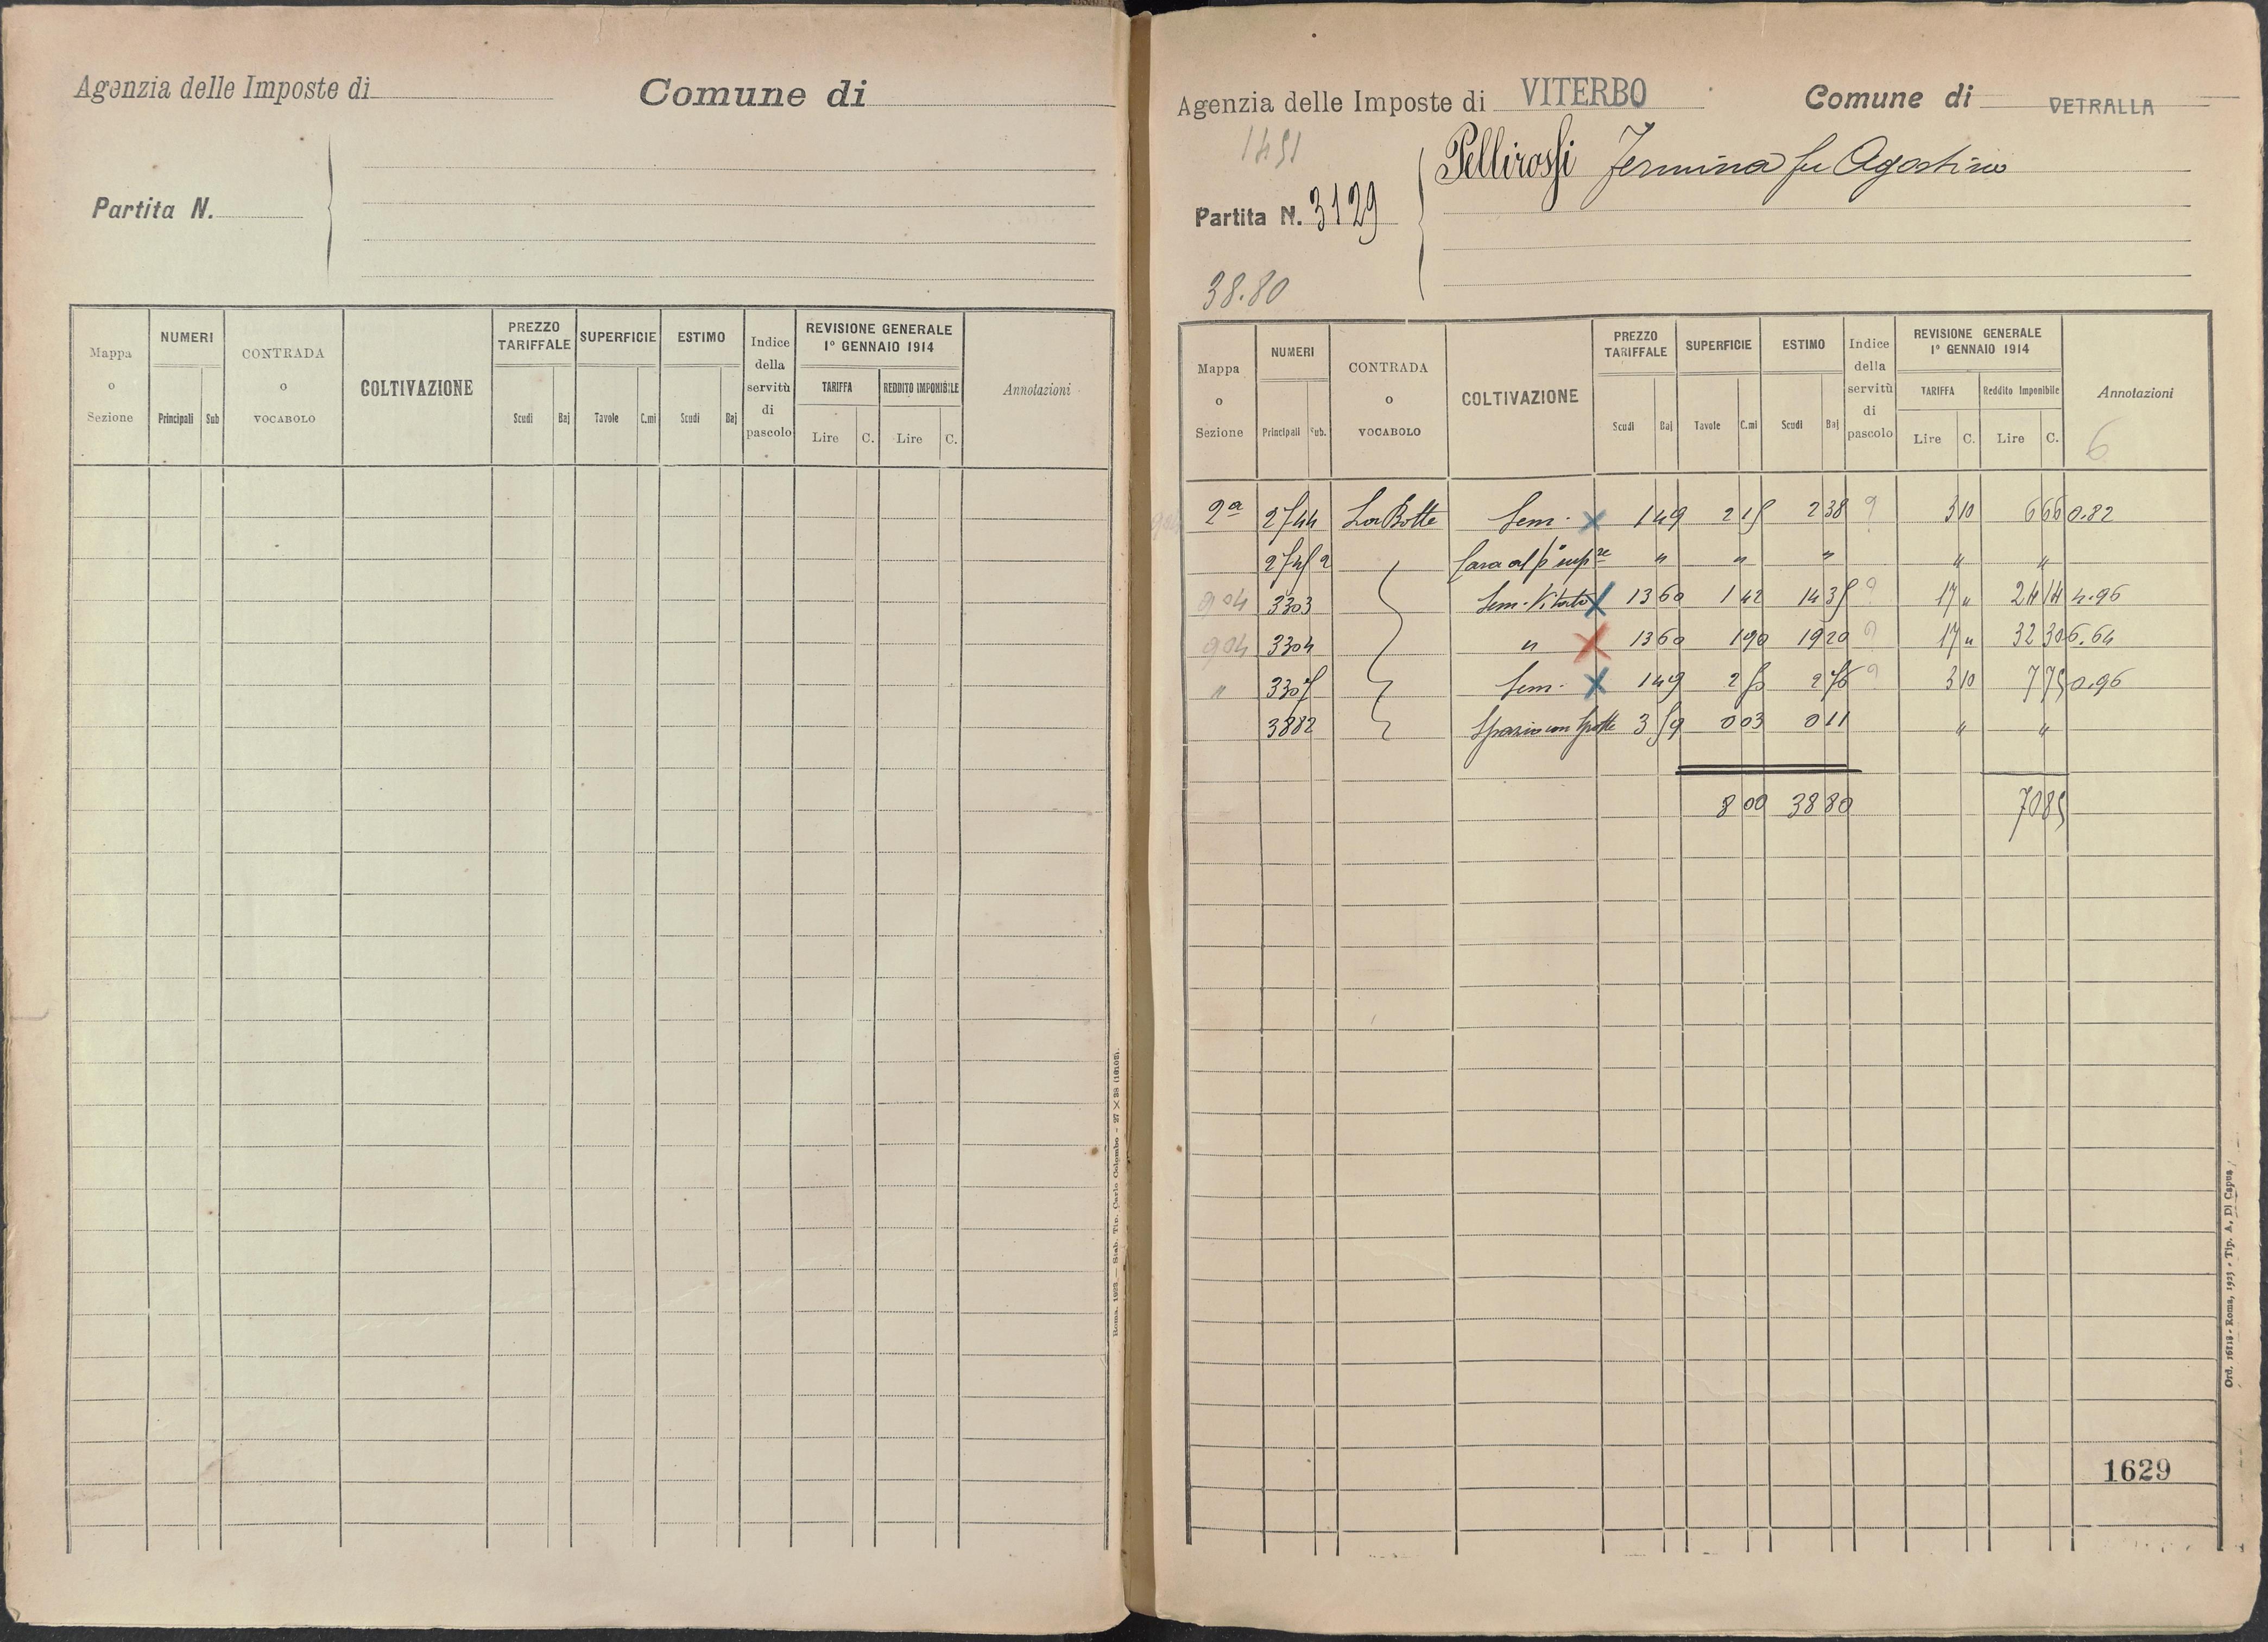 Agenzia delle Imposte di
Comune di
Partita N.
Mappa o Sezione
NUMERI
Principali
Sub
CONTRADA o VOCABOLO
COLTIVAZIONE
PREZZO TARIFFALE
Scudi
Baj
SUPERFICIE
Tavole
C.mi
ESTIMO
Scudi
Baj
Indice della servitù di pascolo
REVISIONE GENERALE
1° GENNAIO 1914
TARIFFA
Lire
C.
REDDITO IMPONIBILE
Lire
C.
Annotazioni
Roma, 1923 — Stab. Tip. Carlo Colombo - 27 X 38 (18105).
Agenzia delle Imposte di VITERBO
Comune di VETRALLA
1491
Partita N. 3129
Pellirossi Fermina fu Agostino
38.80
Mappa o Sezione
NUMERI
Principali
Sub.
CONTRADA o VOCABOLO
COLTIVAZIONE
PREZZO TARIFFALE
Scudi
Baj
SUPERFICIE
Tavole
C.mi
ESTIMO
Scudi
Baj
Indice della servitù di pascolo
REVISIONE GENERALE
1° GENNAIO 1914
TARIFFA
Lire
C.
Reddito Imponibile
Lire
C.
Annotazioni
6
2a 2744 La Botte Sem. X 1 49 2 15 2 38 9 3 10 6 66 0.82
2745 2 Casa " " " " "
904 3303 Sem. Vitato X 13 60 1 42 14 35 9 17 " 24 14 4.96
904 3304 " X 13 60 1 90 19 20 9 17 " 32 30 6.64
" 3307 Sem. X 1 49 2 50 2 76 9 3 10 7 75 0.96
3882 Spazio con grotte 3 59 0 03 0 11 " "
8 00 38 80 70 85
1629
Ord. 16118 - Roma, 1923 - Tip. A. Di Capua